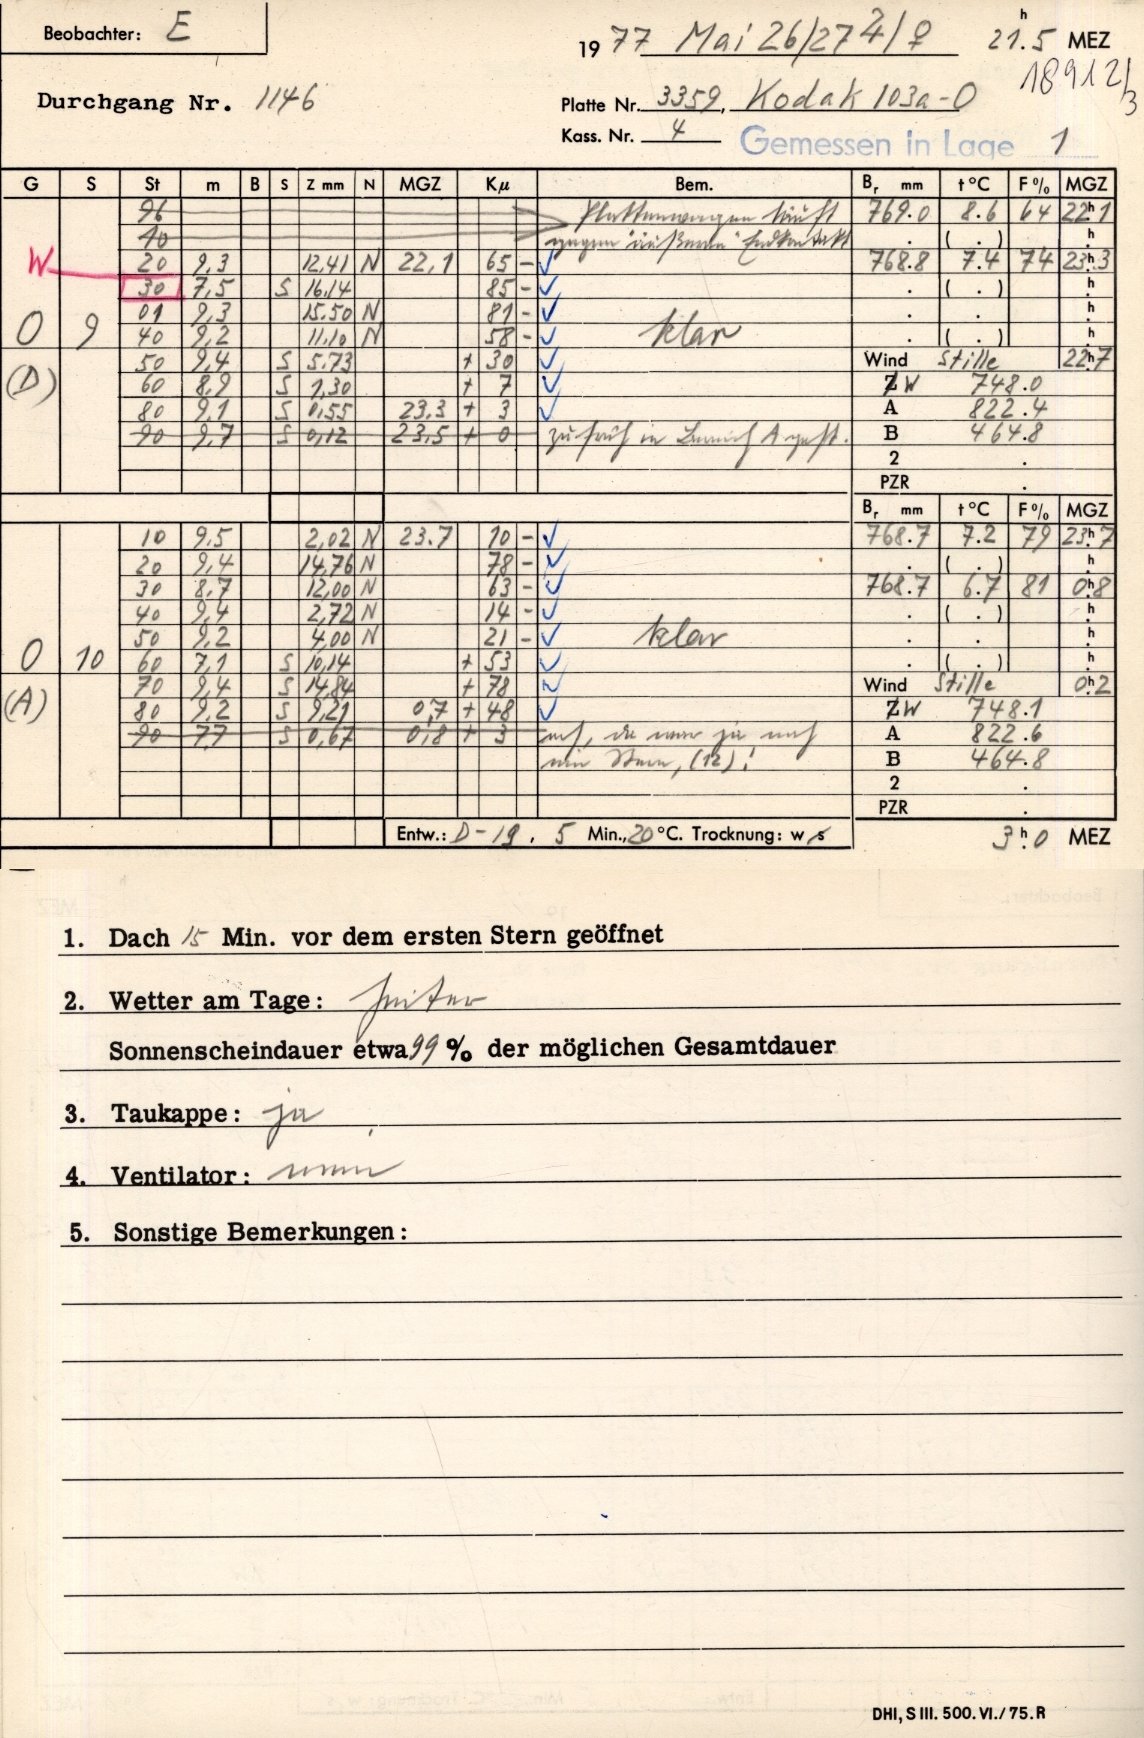 Beobachter: E
1977 Mai 26/27 ♃/♀ 21ʰ.5 MEZ
18912/3
Durchgang Nr. 1146
Platte Nr. 3359, Kodak 103a-O
Kass. Nr. 4 Gemessen in Lage 1
G S St m B S Z mm N MGZ Kμ Bem. Br mm t°C F% MGZ
96 Plattenwagen läuft 769.0 8.6 64 22ʰ.1
10 gegen "äußeren" Endkontakt . ( . ) ʰ.
W 20 9,3 12,41 N 22,1 65 - ✓ 768.8 7.4 74 23ʰ.3
30 7,5 S 16.14 85 - ✓ . ( . ) ʰ.
01 9,3 15.50 N 81 - ✓ . ʰ.
O 9 40 9,2 11,10 N 58 - ✓ klar . ( . ) ʰ.
(D) 50 9,4 S 5.73 + 30 ✓ Wind Stille 22ʰ.7
60 8,9 S 1,30 + 7 ✓ ZW 748.0
80 9,1 S 0,55 23,3 + 3 ✓ A 822.4
90 9,7 S 0,12 23,5 + 0 zu früh in Bereich A gest. B 464.8
2 .
PZR .
Br mm t°C F% MGZ
10 9,5 2,02 N 23.7 10 - ✓ 768.7 7.2 79 23ʰ.7
20 9,4 14,76 N 78 - ✓ . ( . ) ʰ.
30 8,7 12,00 N 63 - ✓ 768.7 6.7 81 0ʰ.8
40 9,4 2,72 N 14 - ✓ . ( . ) ʰ.
50 9,2 4,00 N 21 - ✓ klar . . ʰ.
O 10 60 7,1 S 10,14 + 53 ✓ . ( . ) ʰ.
(A) 70 9,4 S 14,84 + 78 ✓ Wind Stille 0ʰ.2
80 9,2 S 9,21 0,7 + 48 ✓ ZW 748.1
90 7,7 S 0,67 0,8 + 3 ach, da war ja noch A 822.6
ein Stern, (12)! B 464.8
2 .
PZR .
Entw.: D-19. 5 Min., 20°C. Trocknung: w/s 3ʰ.0 MEZ
1. Dach 15 Min. vor dem ersten Stern geöffnet
2. Wetter am Tage: heiter
Sonnenscheindauer etwa 99 % der möglichen Gesamtdauer
3. Taukappe: ja
4. Ventilator: nein
5. Sonstige Bemerkungen:
DHI, S III. 500. VI./75. R